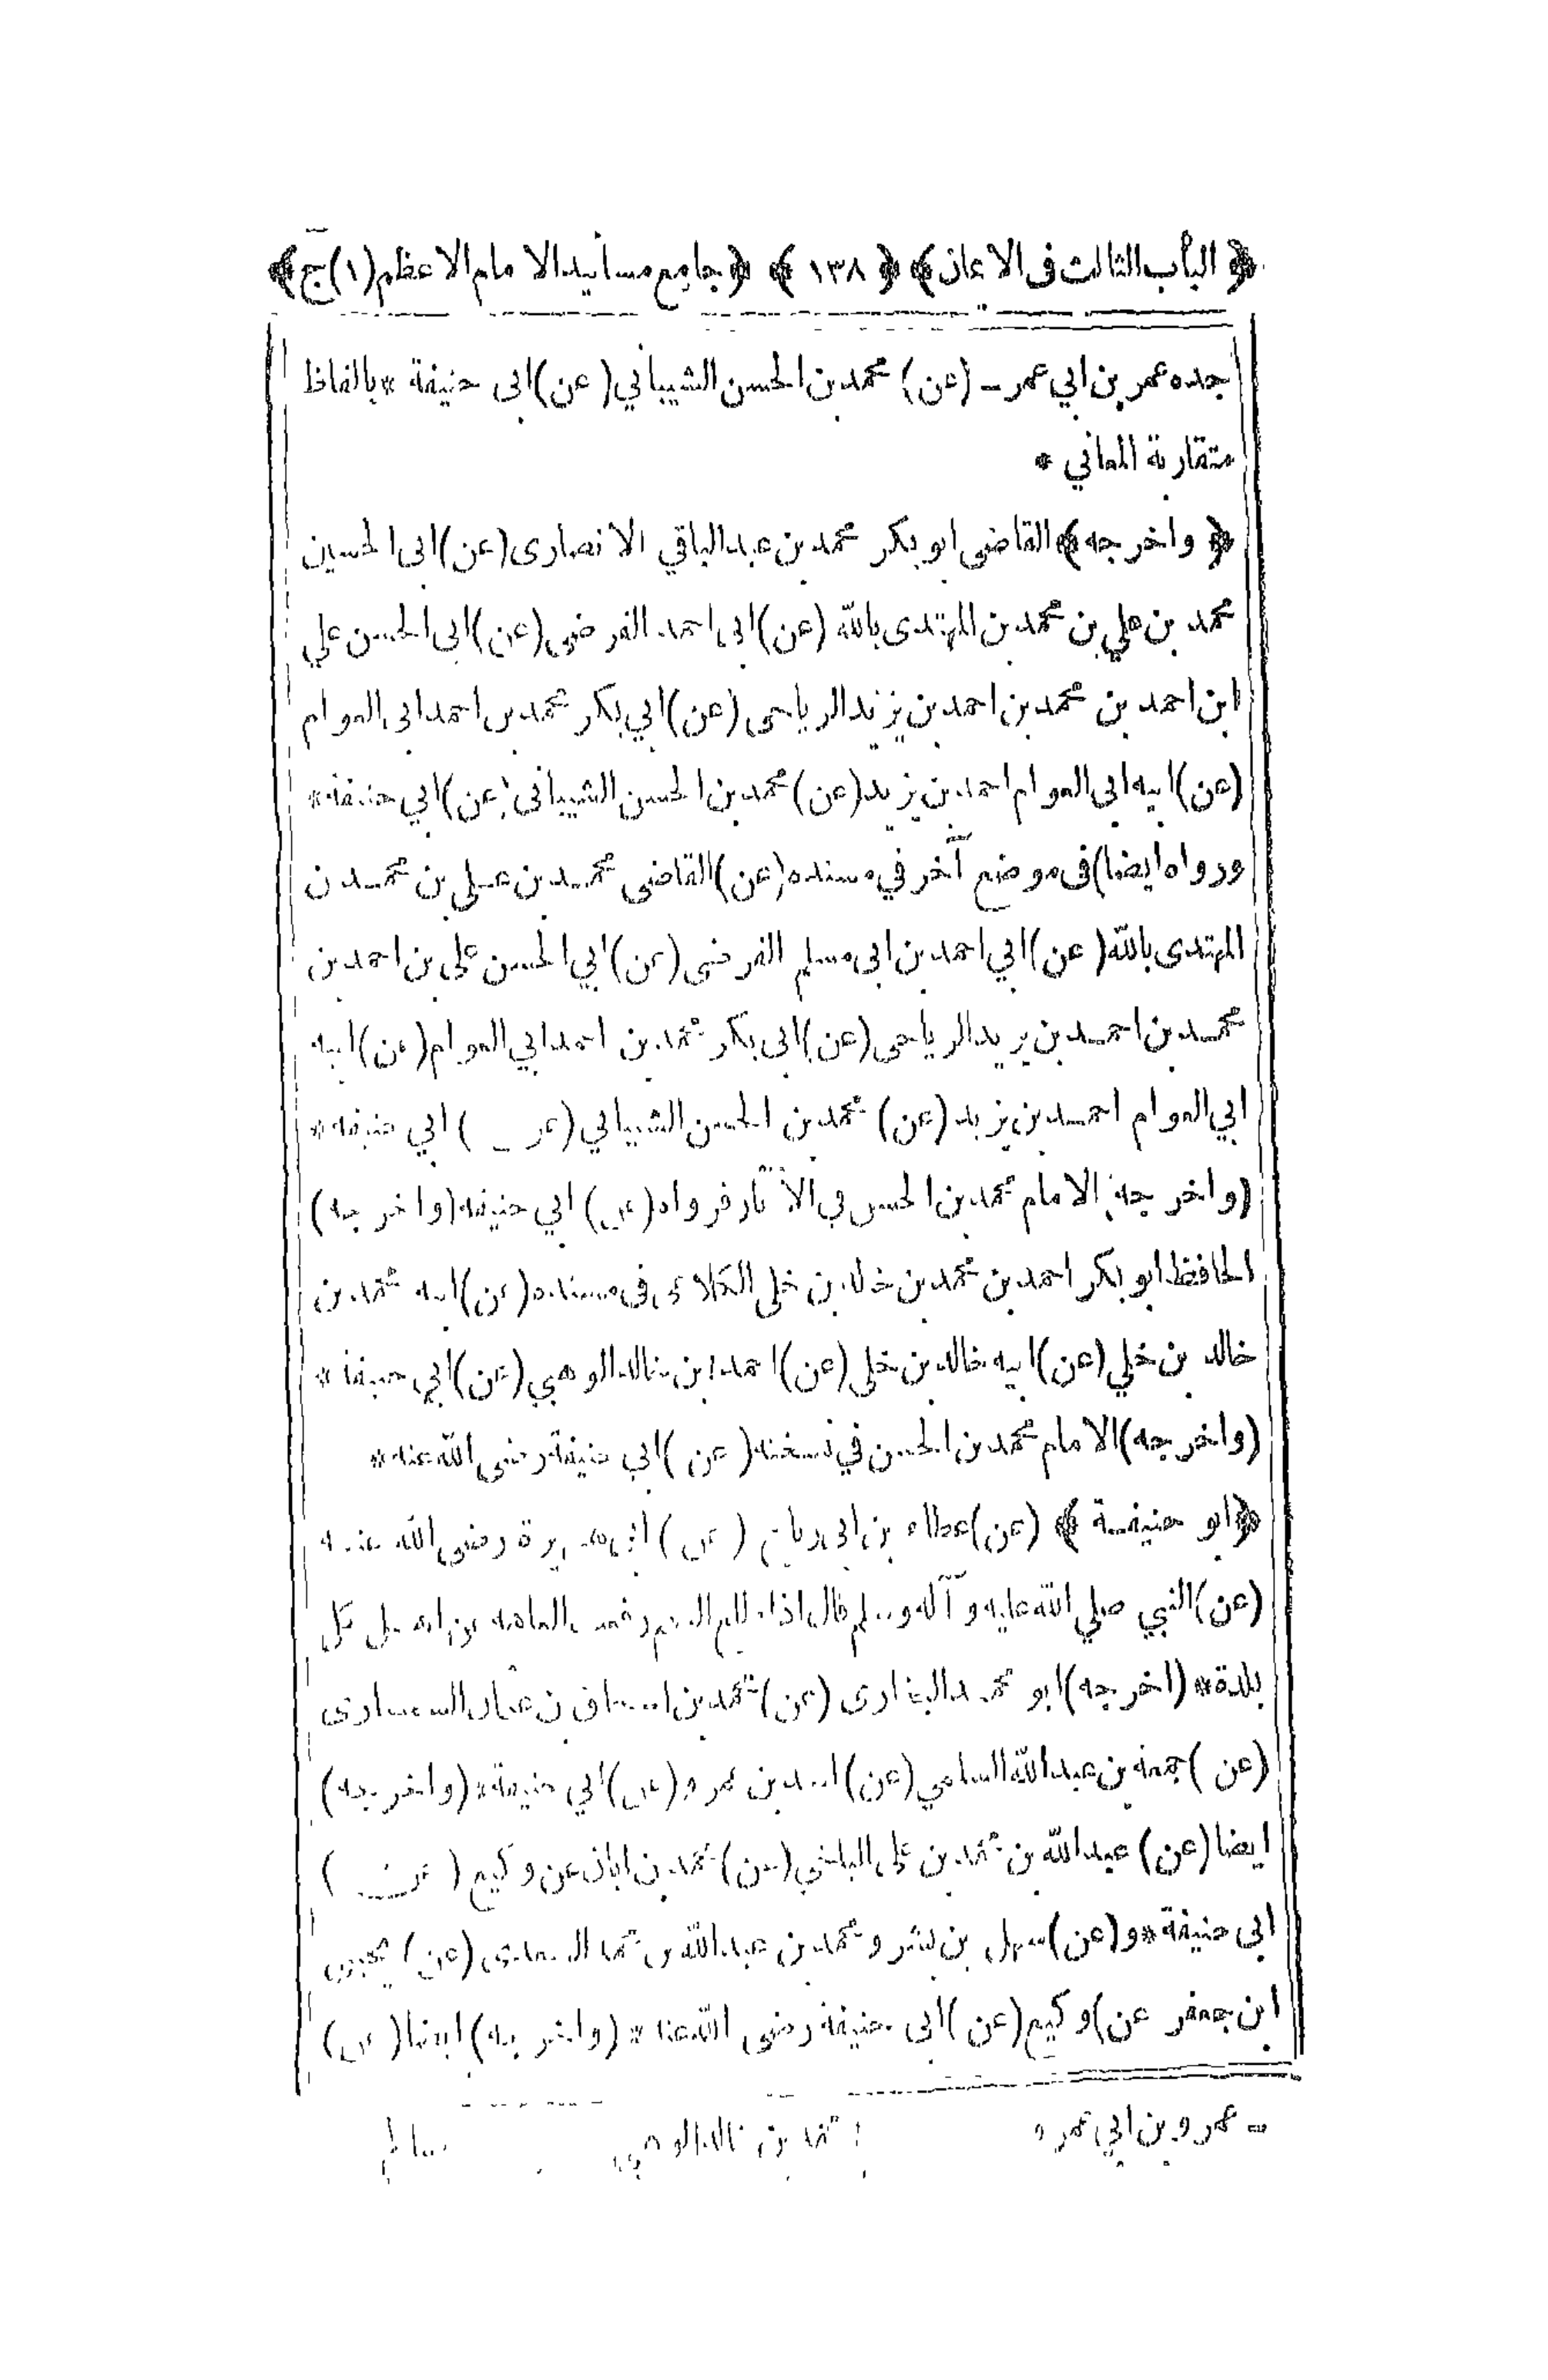 ﴿ الباب الثالث فى الايمان ﴾ ﴿ ١٣٨ ﴾ ﴿ جامع مسانيد الامام الاعظم (١) ج ﴾
جده عمر بن ابي عمر ـ (عن) محمد بن الحسن الشيباني (عن) ابى حنيفة * بالفاظ
متقاربة المعاني *
﴿ واخرجه ﴾ القاضى ابو بكر محمد بن عبد الباقي الانصارى (عن) ابى الحسين
محمد بن علي بن محمد بن المهتدى بالله (عن) ابى احمد الفرضى (عن) ابى الحسن علي
ابن احمد بن محمد بن احمد بن يزيد الرياحى (عن) ابي بكر محمد بن احمد ابى العوام
(عن) ابيه ابى العوام احمد بن يزيد (عن) محمد بن الحسن الشيبانى (عن) ابي حنيفة *
ورواه ايضا) فى موضع آخر في مسنده (عن) القاضى محمد بن عـلى بن محمـد ن
المهتدى بالله (عن) ابي احمد بن ابى مسلم الفرضى (عن) ابي الحسن على بن احمد بن
محمـد بن احمـد بن يريد الرياحى (عن) ابى بكر محمد بن احمد ابي العوام (عن) ابيه
ابي العوام احمـد بن يزيد (عن) محمد بن الحسن الشيباني ( ) ابي حنيفه *
(واخرجه) الامام محمد بن الحسن في الآثار فرواه (عن) ابي حنيفه (واخرجه)
الحافظ ابو بكر احمد بن محمد بن خالد بن خلى الكلاعى فى مسنده (عن) ابيه محمد بن
خالد بن خلي (عن) ابيه خالد بن خلى (عن) احمد ! بن خالد الوهبي (عن) ابي حنيفة *
(واخرجه) الامام محمد بن الحسن في نسخته (عن) ابي حنيفة رضى الله عنه *
﴿ ابو حنيفـة ﴾ (عن) عطاء بن ابى رباح (عن) ابى هريرة رضى الله عنـه
(عن) النبي صلي الله عليه وآله وسلم قال اذا طلع النجم رفعت العاهة عن اهل كل
بلدة * (اخرجه) ابو محمد البخارى (عن) محمد بن اسحاق ن عثمان السمسارى
(عن) جمعة بن عبد الله السلمي (عن) اسد بن عمرو (عن) ابي حنيفة * (واخرجه)
ايضا (عن) عبد الله بن محمد بن على البلخي (عن) محمد بن ابان عن وكيع (عن)
ابى حنيفة * و (عن) سهل بن بشر ومحمد بن عبد الله بن محمد السعدى (عن) يحيى
ابن جعفر عن) وكيع (عن) ابى حنيفة رضى الله عنه * (واخرجه) ايضا (عن)
ـ عمرو بن ابي عمر * ! محمد بن خالد الوهبي